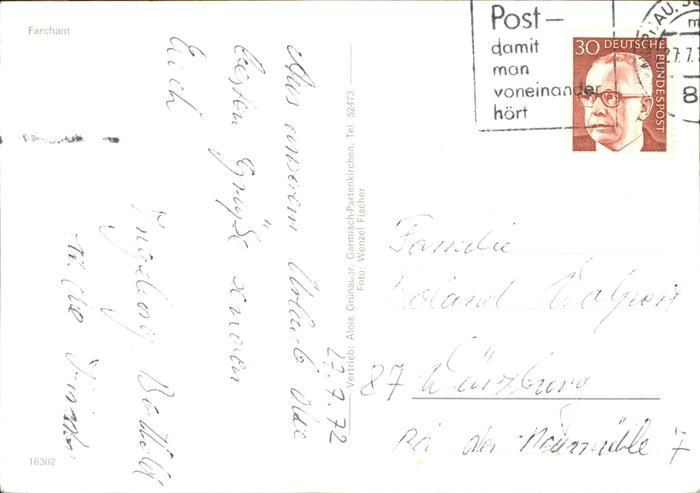 Farchant
Aus unserem Urlaub die
besten Grüße senden
Euch
Ingeborg, Berthold
u. die Kinder
27.7.72
Vertrieb: Alois Grünauer, Garmisch-Partenkirchen, Tel. 52473
Foto: Wenzel Fischer
Post—
damit
man
voneinander
hört
30 DEUTSCHE
BUNDESPOST
27.7.
8
Familie
Roland
87 Würzburg
Bei der Neumühle 7
16302